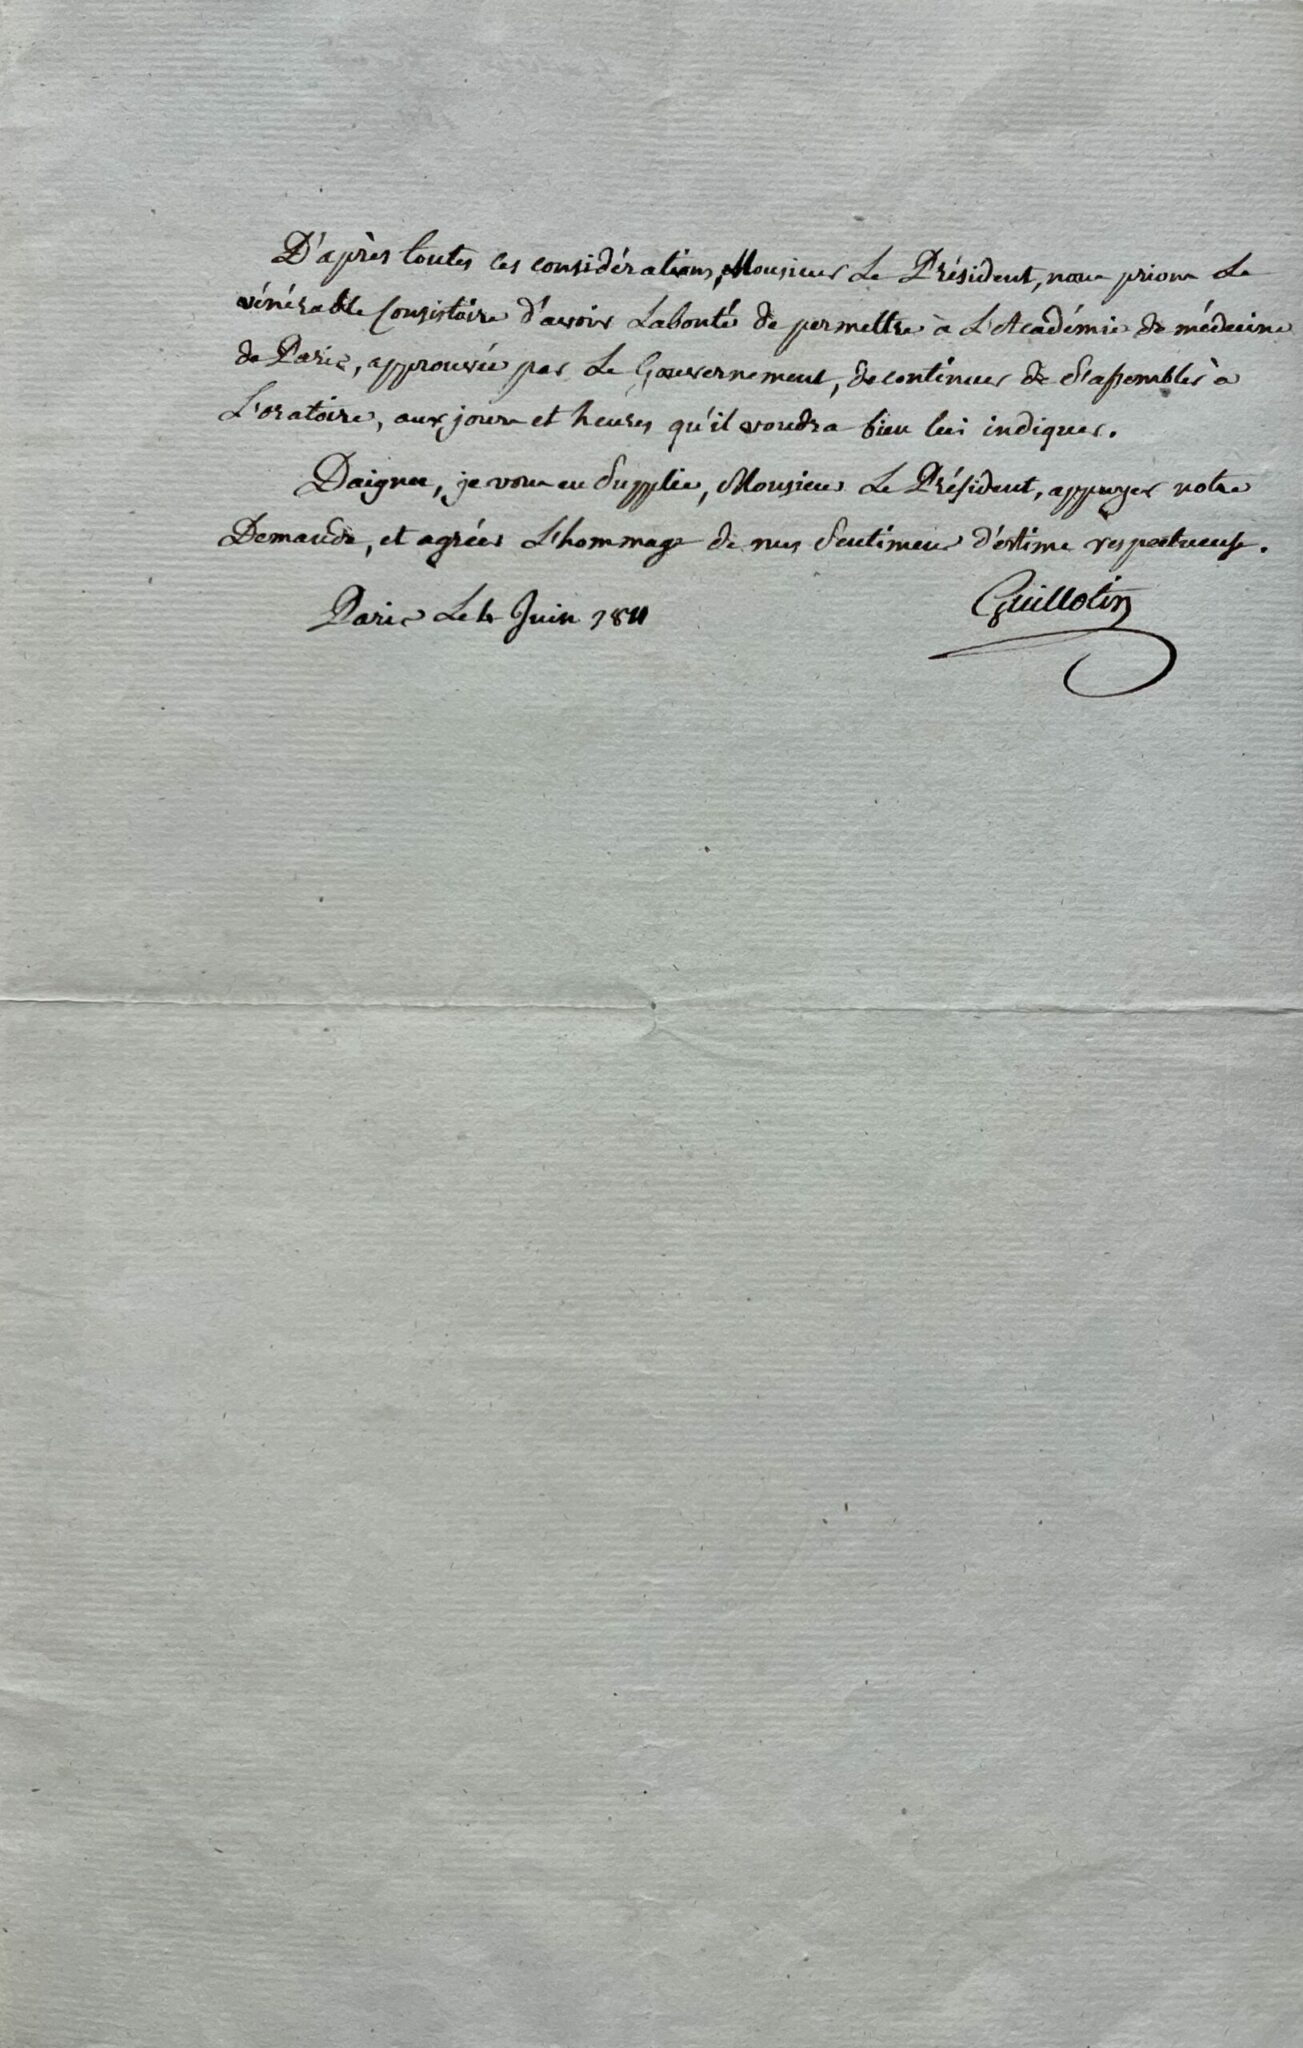 D'après toutes ces considérations, Monsieur Le Président, nous prions Le
vénérable Consistoire d'avoir La bonté de permettre à L'Académie de médecine
de Paris, approuvée par Le Gouvernement, de continuer de s'assembler à
L'oratoire, aux jours et heures qu'il voudra bien lui indiquer.
Daignez, je vous en Supplie, Monsieur Le Président, appuyer notre
Demande, et agréer L'hommage de nos Sentimens d'estime respectueuse.
Paris Le 4 Juin 1811
Guillotin